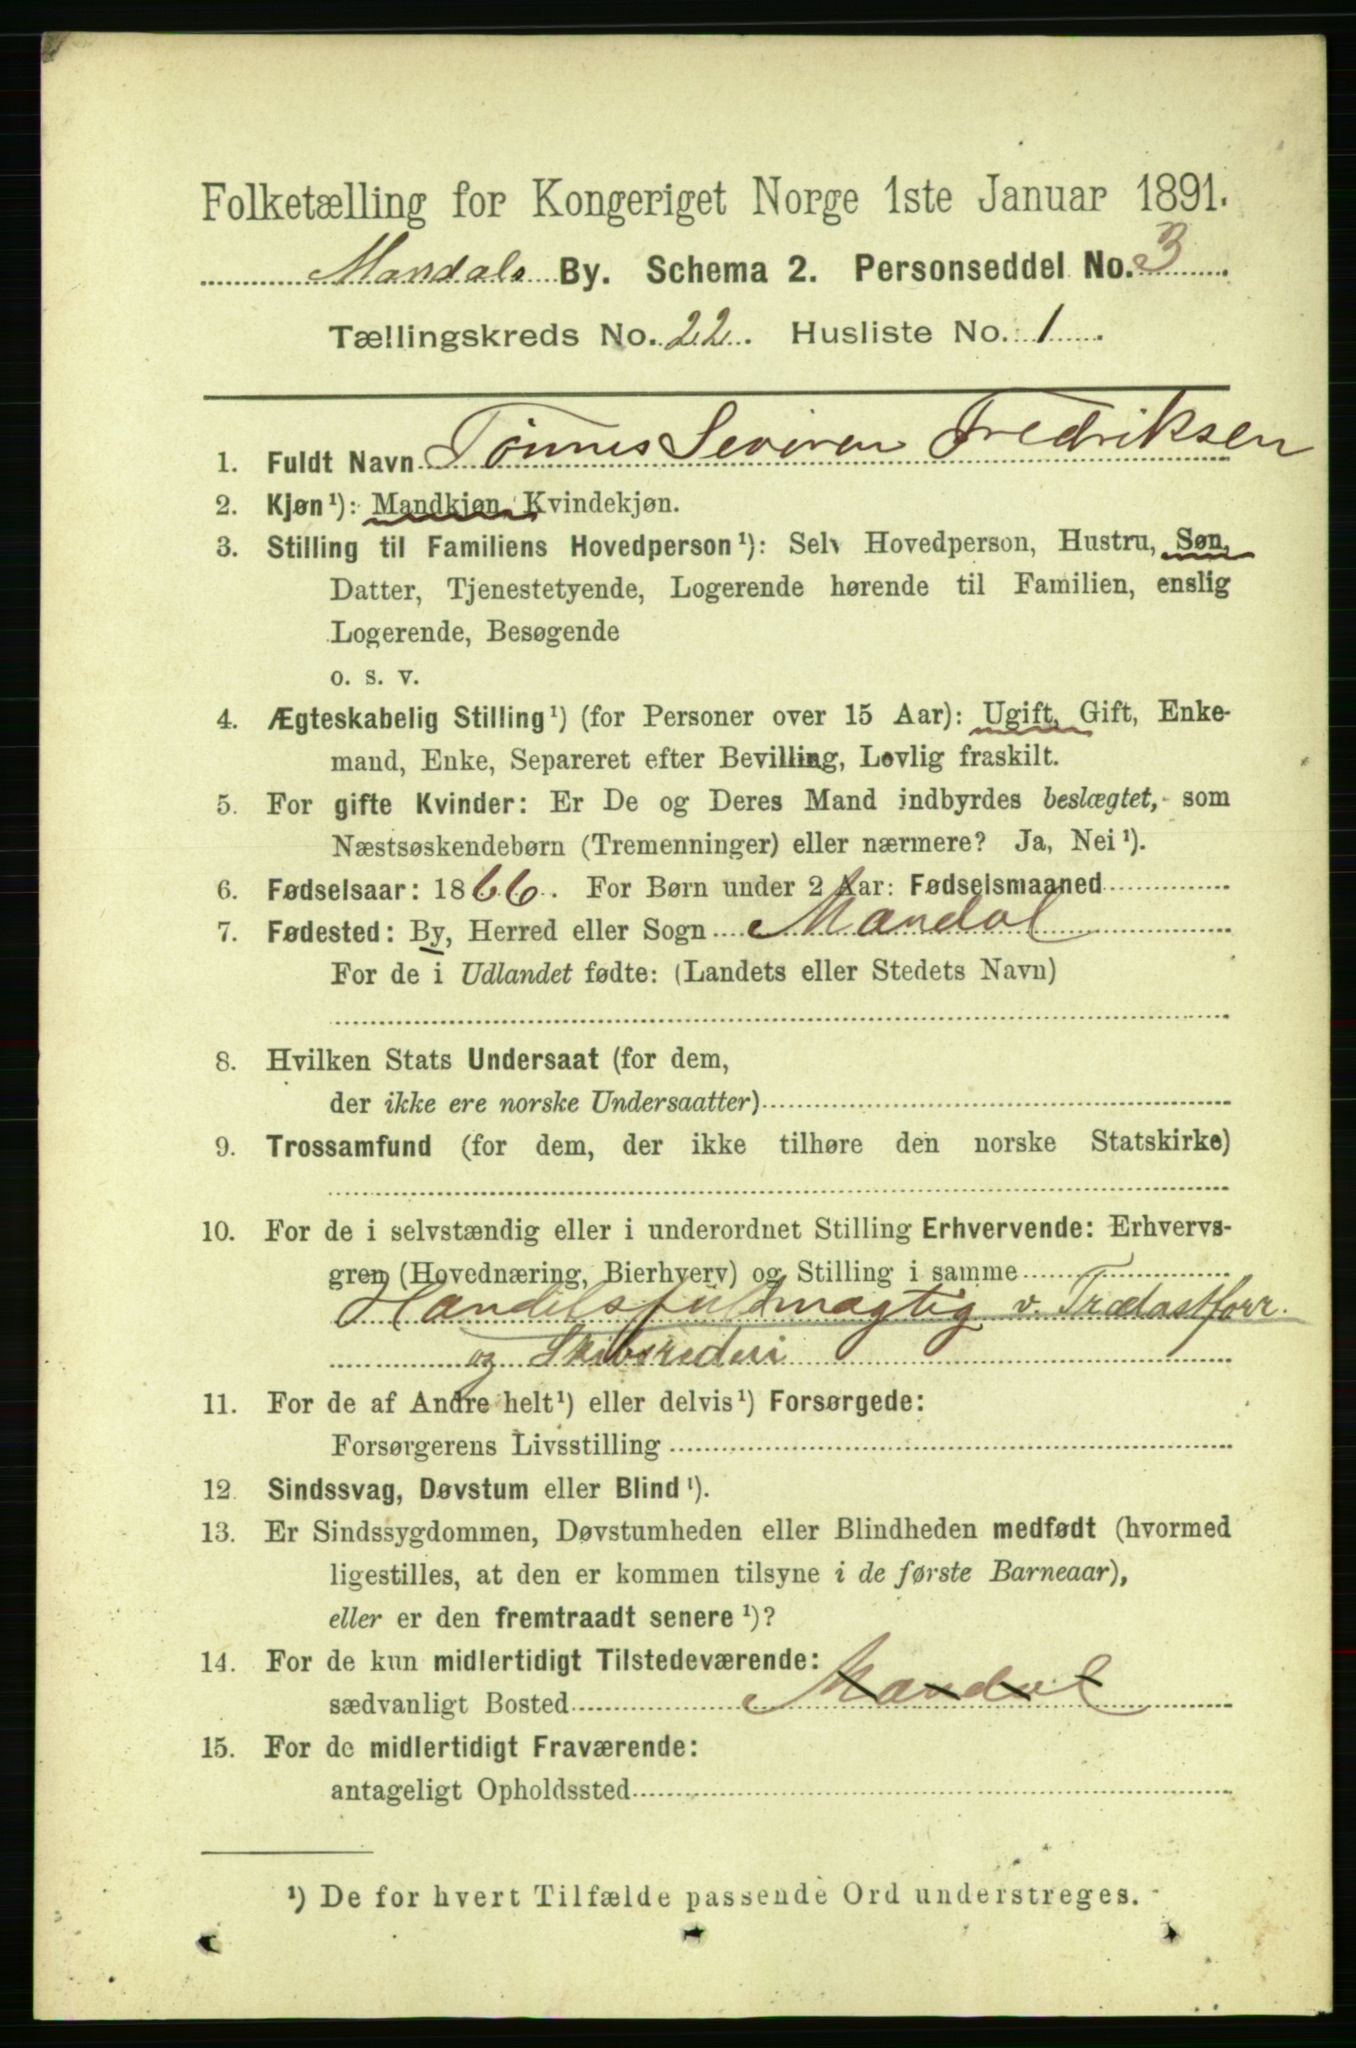 Folketælling for Kongeriget Norge 1ste Januar 1891.
Mandals By. Schema 2. Personseddel No. 3
Tællingskreds No. 22. Husliste No. 1.
1. Fuldt Navn Tönnes Severin Fredriksen
2. Kjøn¹): Mandkjøn, Kvindekjøn.
3. Stilling til Familiens Hovedperson¹): Selv Hovedperson, Hustru, Søn,
Datter, Tjenestetyende, Logerende hørende til Familien, enslig
Logerende, Besøgende
o. s. v.
4. Ægteskabelig Stilling¹) (for Personer over 15 Aar): Ugift, Gift, Enke-
mand, Enke, Separeret efter Bevilling, Lovlig fraskilt.
5. For gifte Kvinder: Er De og Deres Mand indbyrdes beslægtet, som
Næstsøskendebørn (Tremenninger) eller nærmere? Ja, Nei¹).
6. Fødselsaar: 1866. For Børn under 2 Aar: Fødselsmaaned
7. Fødested: By, Herred eller Sogn Mandal
For de i Udlandet fødte: (Landets eller Stedets Navn)
8. Hvilken Stats Undersaat (for dem,
der ikke ere norske Undersaatter)
9. Trossamfund (for dem, der ikke tilhøre den norske Statskirke)
10. For de i selvstændig eller i underordnet Stilling Erhvervende: Erhvervs-
gren (Hovednæring, Bierhverv) og Stilling i samme
Handelsfuldmægtig v. Trælastforr.
og Skibsrederi
11. For de af Andre helt¹) eller delvis¹) Forsørgede:
Forsørgerens Livsstilling
12. Sindssvag, Døvstum eller Blind¹).
13. Er Sindssygdommen, Døvstumheden eller Blindheden medfødt (hvormed
ligestilles, at den er kommen tilsyne i de første Barneaar),
eller er den fremtraadt senere¹)?
14. For de kun midlertidigt Tilstedeværende:
sædvanligt Bosted Mandal
15. For de midlertidigt Fraværende:
antageligt Opholdssted
¹) De for hvert Tilfælde passende Ord understreges.